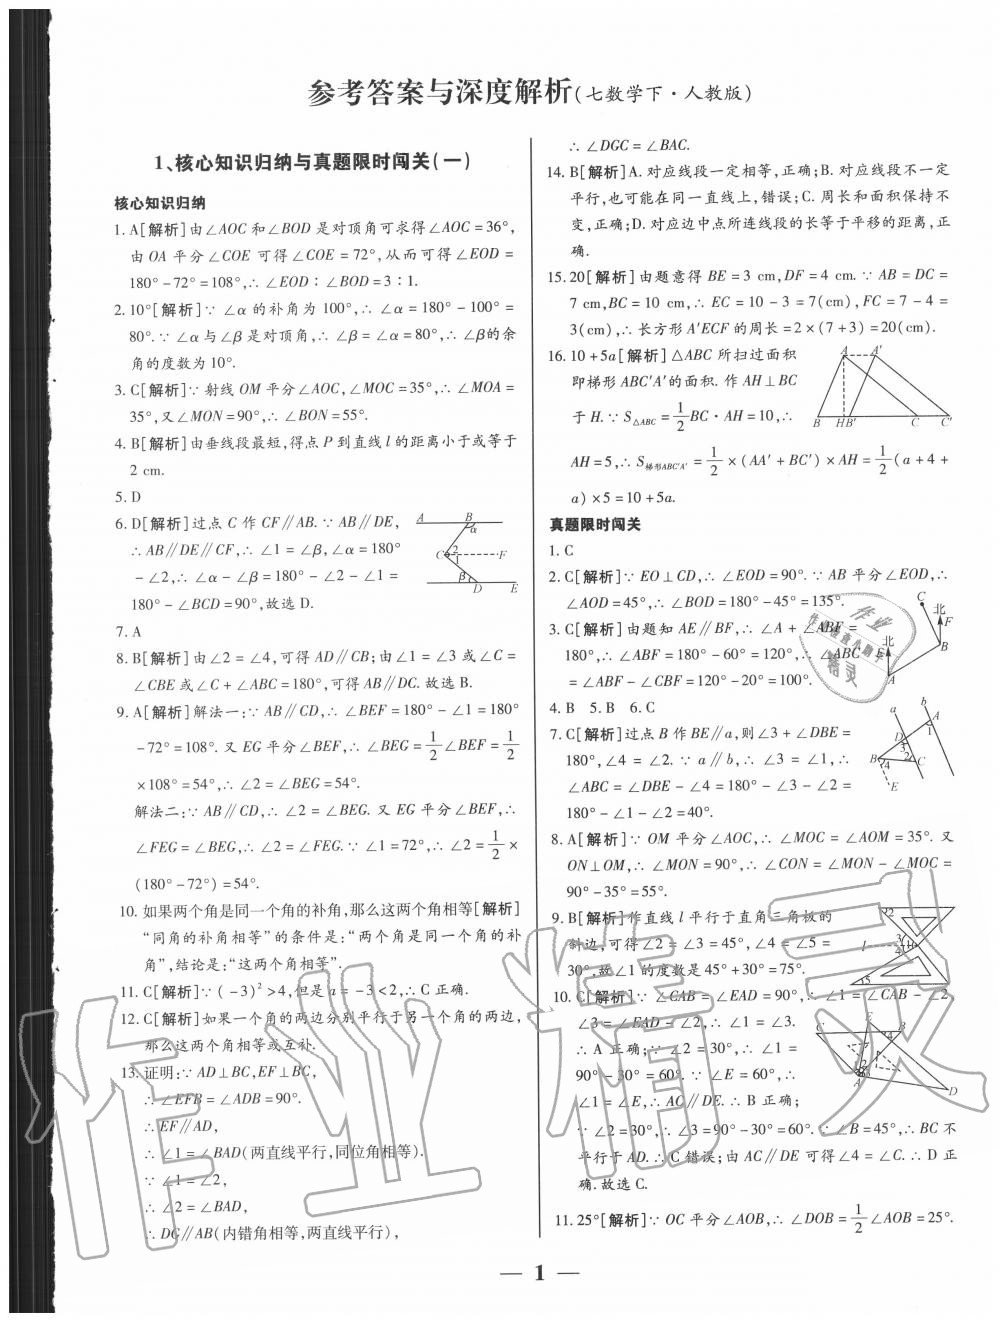 参考答案与深度解析(七数学下·人教版)
1、核心知识归纳与真题限时闯关(一)
核心知识归纳
1. A[解析]由∠AOC 和∠BOD 是对顶角可求得∠AOC=36°,
由 OA 平分∠COE 可得∠COE=72°,从而可得∠EOD=
180°-72°=108°,∴∠EOD∶∠BOD=3∶1.
2. 10°[解析]∵∠α的补角为 100°,∴∠α=180°-100°=
80°.∵∠α与∠β是对顶角,∴∠β=∠α=80°,∴∠β的余
角的度数为10°.
3. C[解析]∵射线 OM 平分∠AOC,∠MOC=35°,∴∠MOA=
35°,又∠MON=90°,∴∠BON=55°.
4. B[解析]由垂线段最短,得点 P 到直线 l 的距离小于或等于
2 cm.
5. D
6. D[解析]过点 C 作 CF∥AB.∵AB∥DE,
∴AB∥DE∥CF,∴∠1=∠β,∠α=180°
-∠2,∴∠α-∠β=180°-∠2-∠1=
180°-∠BCD=90°,故选 D.
A B α
C 2 1 F
β D E
7. A
8. B[解析]由∠2=∠4,可得 AD∥CB;由∠1=∠3或∠C=
∠CBE 或∠C+∠ABC=180°,可得 AB∥DC.故选 B.
9. A[解析]解法一:∵AB∥CD,∴∠BEF=180°-∠1=180°
-72°=108°.又 EG 平分∠BEF,∴∠BEG=1/2∠BEF=1/2
×108°=54°,∴∠2=∠BEG=54°.
解法二:∵AB∥CD,∴∠2=∠BEG.又 EG 平分∠BEF,∴
∠FEG=∠BEG,∴∠2=∠FEG.∵∠1=72°,∴∠2=1/2×
(180°-72°)=54°.
10. 如果两个角是同一个角的补角,那么这两个角相等[解析]
“同角的补角相等”的条件是:“两个角是同一个角的补
角”,结论是:“这两个角相等”.
11. C[解析]∵(-3)²>4,但是a=-3<2,∴C 正确.
12. C[解析]如果一个角的两边分别平行于另一个角的两边,
那么这两个角相等或互补.
13. 证明:∵AD⊥BC,EF⊥BC,
∴∠EFB=∠ADB=90°.
∴EF∥AD,
∴∠1=∠BAD(两直线平行,同位角相等).
∵∠1=∠2,
∴∠2=∠BAD,
∴DG∥AB(内错角相等,两直线平行),
∴∠DGC=∠BAC.
14. B[解析]A. 对应线段一定相等,正确;B. 对应线段不一定
平行,也可能在同一直线上,错误;C. 周长和面积保持不
变,正确;D. 对应边中点所连线段的长等于平移的距离,正
确.
15. 20[解析]由题意得 BE=3 cm,DF=4 cm.∵AB=DC=
7 cm,BC=10 cm,∴EC=10-3=7(cm),FC=7-4=
3(cm),∴长方形 A′ECF 的周长=2×(7+3)=20(cm).
16. 10+5a[解析]△ABC 所扫过面积
即梯形 ABC′A′的面积.作 AH⊥BC
于 H.∵S△ABC=1/2BC·AH=10,∴
AH=5,∴S梯形ABC′A′=1/2×(AA′+BC′)×AH=1/2(a+4+
a)×5=10+5a.
A A′
B H B′ C C′
真题限时闯关
1. C
2. C[解析]∵EO⊥CD,∴∠EOD=90°.∵AB 平分∠EOD,∴
∠AOD=45°,∴∠BOD=180°-45°=135°.
3. C[解析]由题知 AE∥BF,∴∠A+∠ABF=
180°,∴∠ABF=180°-60°=120°,∴∠ABC
=∠ABF-∠CBF=120°-20°=100°.
C 北 F
北 B
E
A
4. B 5. B 6. C
7. C[解析]过点 B 作 BE∥a,则∠3+∠DBE=
180°,∠4=∠2.∵a∥b,∴∠3=∠1,∴
∠ABC=∠DBE-∠4=180°-∠3-∠2=
180°-∠1-∠2=40°.
a b
A 1
D 3 2
B 4 C
E
8. A[解析]∵OM 平分∠AOC,∴∠MOC=∠AOM=35°.又
ON⊥OM,∴∠MON=90°,∴∠CON=∠MON-∠MOC=
90°-35°=55°.
9. B[解析]作直线 l 平行于直角三角板的
斜边,可得∠2=∠3=45°,∠4=∠5=
30°,故∠1的度数是45°+30°=75°.
10. C[解析]∵∠CAB=∠EAD=90°,∴∠1=∠CAB-∠2,
∠3=∠EAD-∠2,∴∠1=∠3.
∴A 正确;∵∠2=30°,∴∠1=
90°-30°=60°.∵∠E=60°,∴
∠1=∠E,∴AC∥DE.∴B 正确;
∵∠2=30°,∴∠3=90°-30°=60°.∵∠B=45°,∴BC 不
平行于 AD.∴C 错误;由 AC∥DE 可得∠4=∠C.∴D 正
确.故选 C.
11. 25°[解析]∵OC 平分∠AOB,∴∠DOB=1/2∠AOB=25°.
— 1 —
作业精灵